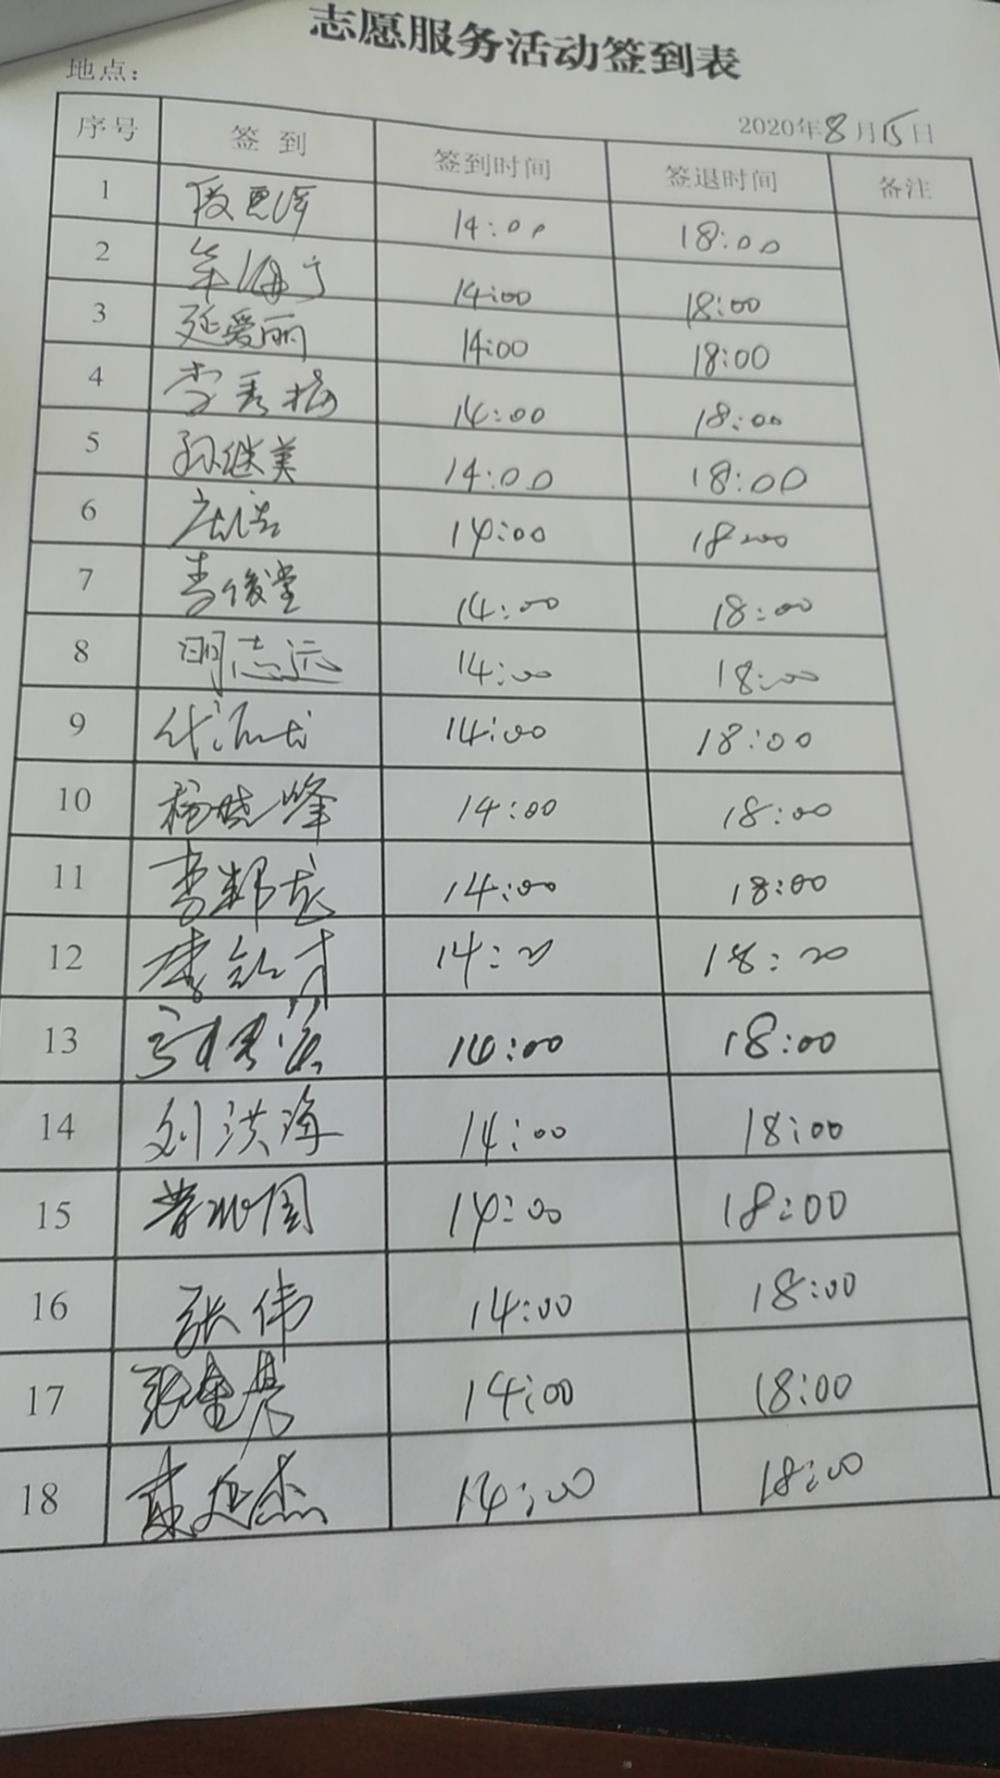 志愿服务活动签到表
地点：
2020年8月15日
序号 签到 签到时间 签退时间 备注
1 14:00 18:00
2 14:00 18:00
3 延爱丽 14:00 18:00
4 李秀梅 14:00 18:00
5 孙继美 14:00 18:00
6 14:00 18:00
7 李俊堂 14:00 18:00
8 明志远 14:00 18:00
9 14:00 18:00
10 杨晓峰 14:00 18:00
11 14:00 18:00
12 14:20 18:20
13 14:00 18:00
14 刘洪海 14:00 18:00
15 14:00 18:00
16 张伟 14:00 18:00
17 14:00 18:00
18 14:00 18:00